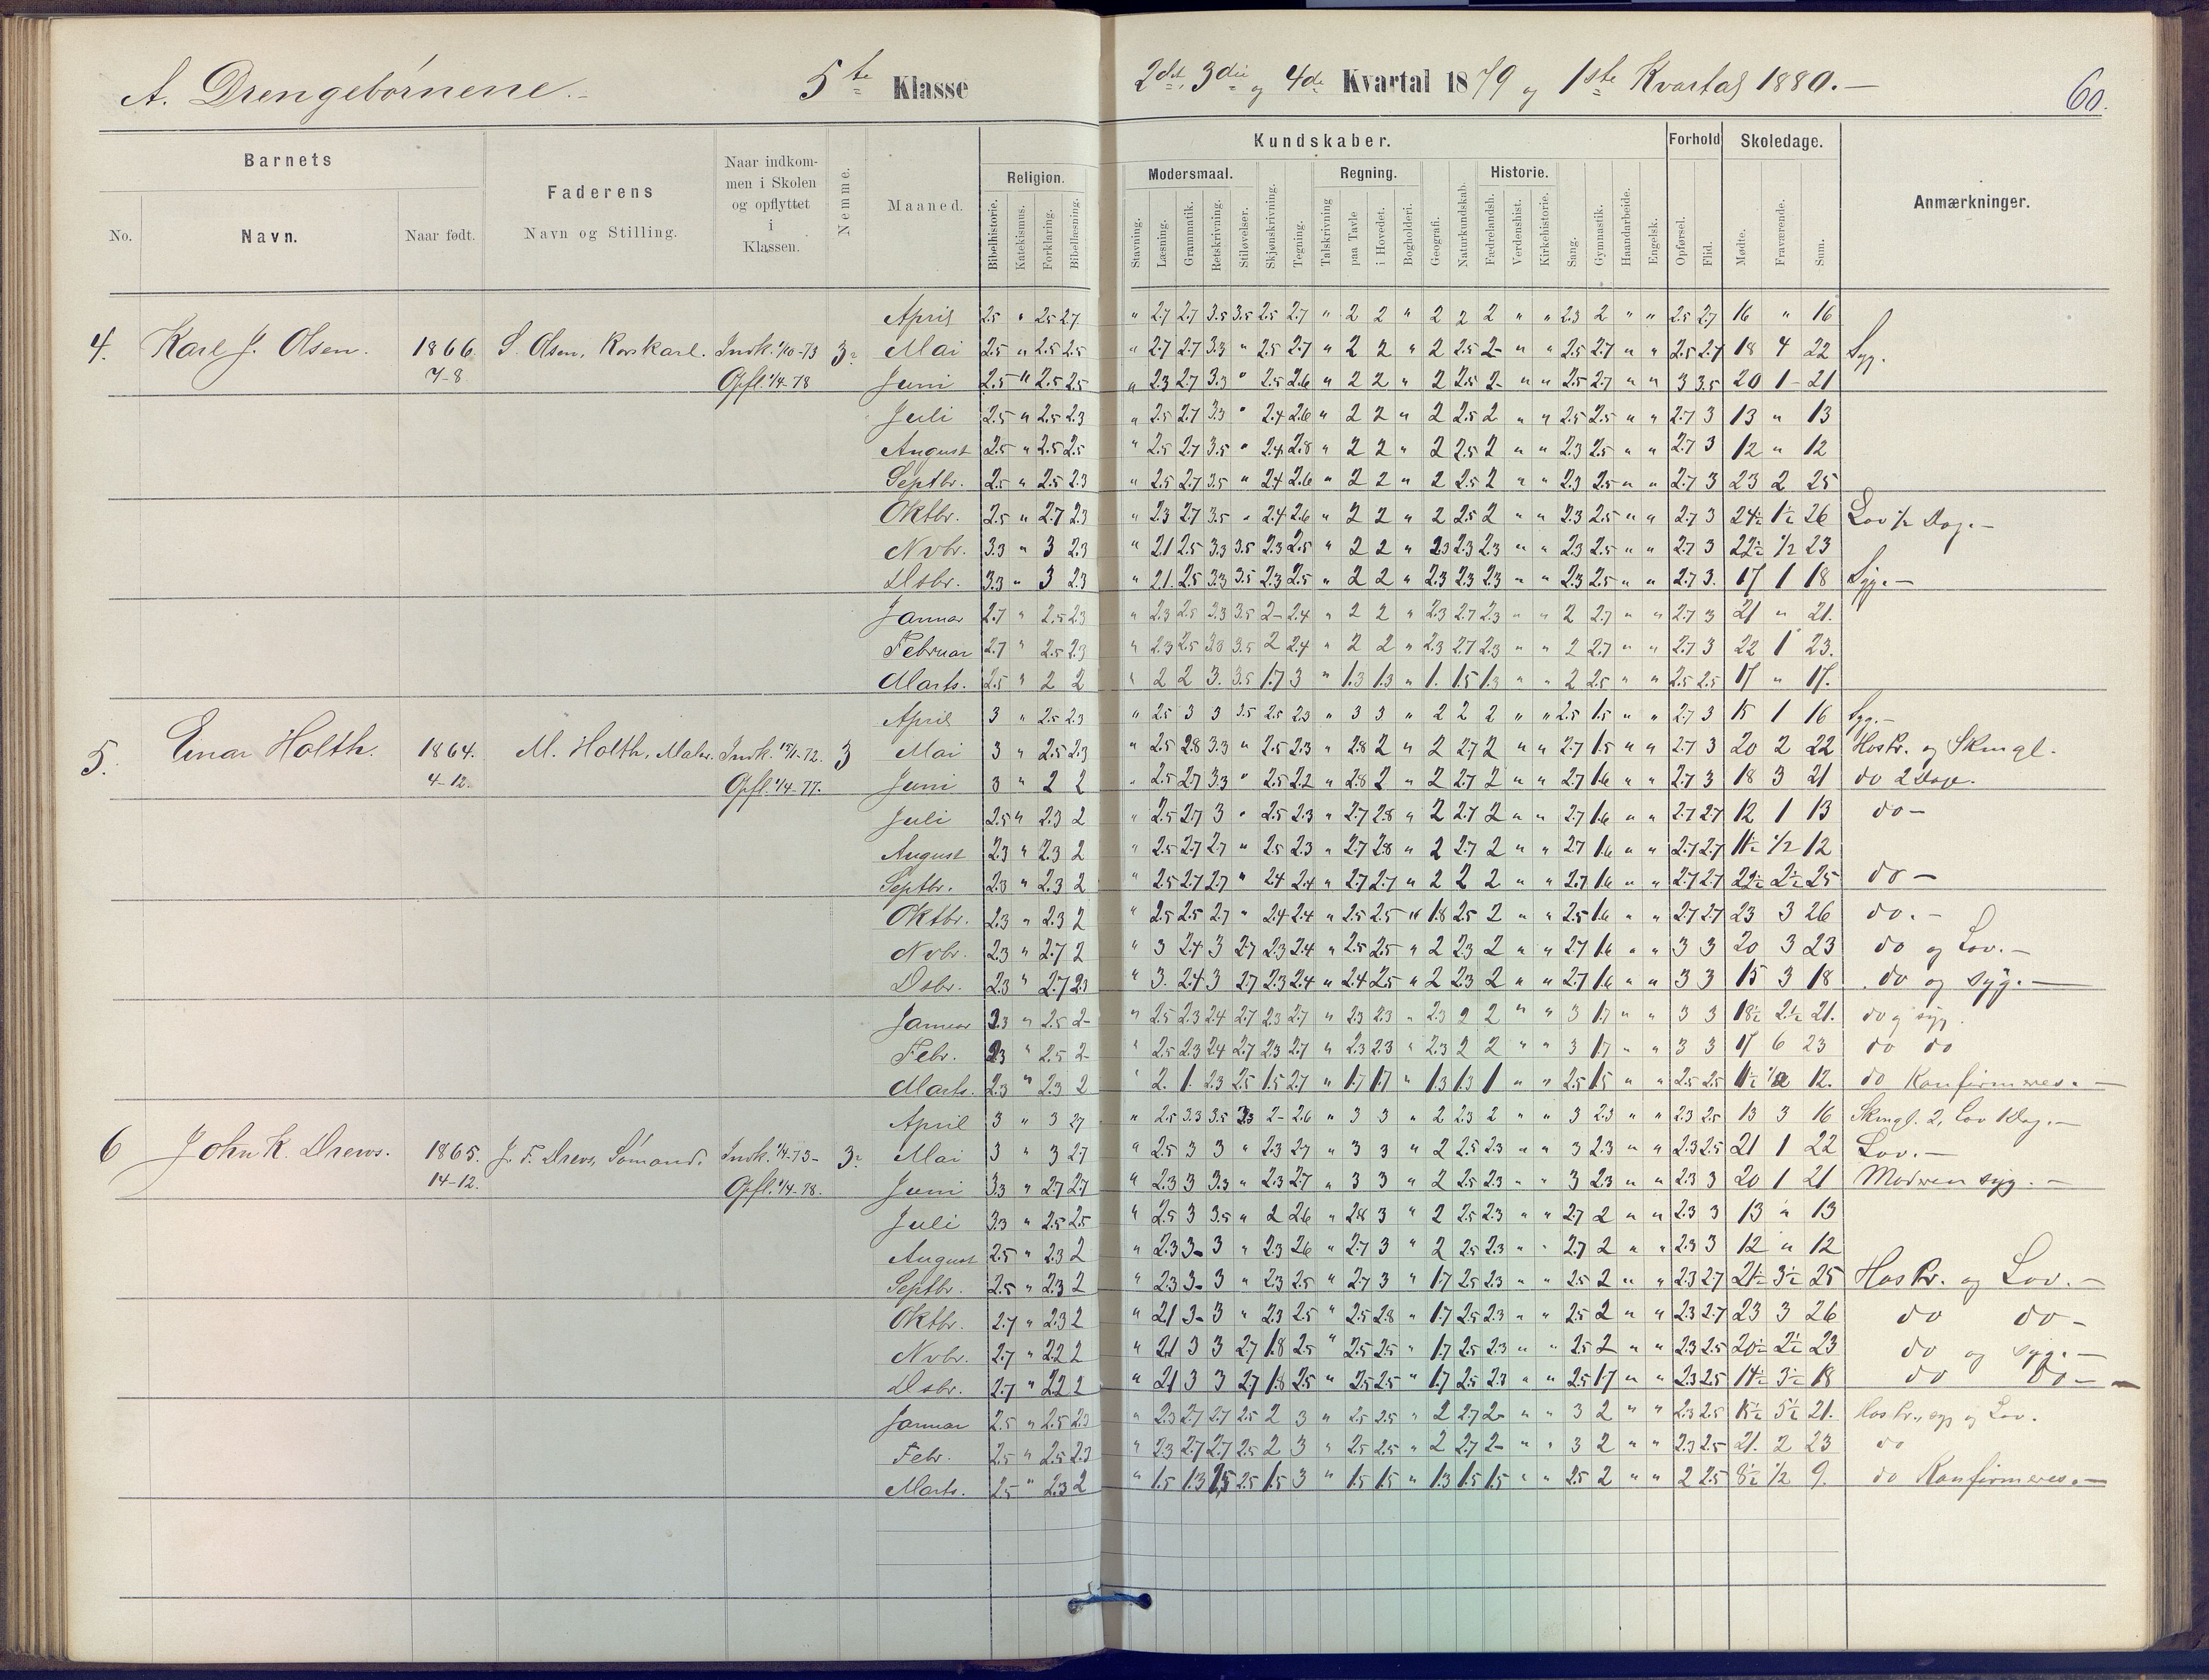 A. Drengebørnene.- 5te Klasse 2det, 3die og 4de Kvartal 1879 og 1ste Kvartal 1880.- 60.
Barnets
No. Navn. Naar født.
Faderens
Navn og Stilling.
Naar indkom-
men i Skolen
og opflyttet
i
Klassen.
Nemme.
Maaned.
Kundskaber.
Religion.
Bibelhistorie. Katekismus. Forklaring. Bibellæsning.
Modersmaal.
Stavning. Læsning. Grammatik. Retskrivning. Stiløvelser. Skjønskrivning. Tegning.
Regning.
Talskrivning paa Tavle i Hovedet. Bogholderi.
Geografi. Naturkundskab.
Historie.
Fædrelandsh. Verdenshist. Kirkehistorie.
Sang. Gymnastik. Haandarbeide. Engelsk.
Forhold
Opførsel. Flid.
Skoledage.
Mødte. Fraværende. Sum.
Anmærkninger.
April 2.5 " 2.5 2.7 " 2.7 2.7 3.5 3.5 2.5 2.7 " 2 2 " 2 2 2 " " 2.3 2 " " 2.5 2.7 16 " 16
4. Karl J. Olsen. 1866. S. Olsen, Indk. 1/10-73 3- Mai 2.5 " 2.5 2.5 " 2.7 2.7 3.3 " 2.5 2.7 " 2 2 " 2 2.5 2- " " 2.5 2.7 " " 2.5 2.7 18 4 22 Syg.
7-8 Opfl. 1/4-78 Juni 2.5 " 2.5 2.5 " 2.3 2.7 3.3 " 2.5 2.6 " 2 2 " 2 2.5 2- " " 2.5 2.7 " " 3 3.5 20 1- 21
Juli 2.5 " 2.5 2.3 " 2.5 2.7 3.3 " 2.4 2.6 " 2 2 " 2 2.5 2 " " 2.5 2.5 " " 2.7 3 13 " 13
August 2.5 " 2.5 2.5 " 2.5 2.7 3.5 " 2.4 2.8 " 2 2 " 2 2.5 2 " " 2.3 2.5 " " 2.7 3 12 " 12
Septbr. 2.5 " 2.5 2.3 " 2.5 2.7 3.5 " 2.4 2.6 " 2 2 " 2 2.5 2 " " 2.3 2.5 " " 2.7 3 23 2 25
Oktbr. 2.5 " 2.7 2.3 " 2.3 2.7 3.5 " 2.4 2.6 " 2 2 " 2 2.5 2 " " 2.3 2.5 " " 2.7 3 24½ 1½ 26 Lov ½ Dag.-
Nvbr. 3.3 " 3 2.3 " 2.1 2.5 3.3 3.5 2.3 2.5 " 2 2 " 2.3 2.3 2.3 " " 2.3 2.5 " " 2.7 3 22½ 1/2 23
Dsbr. 3.3 " 3 2.3 " 2.1. 2.5 3.3 3.5 2.3 2.5 " 2 2 " 2.3 2.3 2.3 " " 2.3 2.5 " " 2.7 3. 17 1 18 Syg.-
Januar 2.7 " 2.5 2.3 " 2.3 2.5 3.3 3.5 2- 2.4 " 2 2 " 2.3 2.7 2.3 " " 2 2.7 " " 2.7 3 21 " 21.
Februar 2.7 " 2.5 2.3 " 2.3 2.5 3.5 2 2.4 " 2 2 " 2.3 2.7 2.3 " " 2 2.7 " " 2.7 3 22 1 23.
Marts. 2.5 " 2 2 " 2 2 3. 3.5 1.7 3 " 1.3 1.3 " 1. 1.5 1.3 " " 2 2.5 " " 2.5 2.5 17 " 17.
April 3 " 2.5 2.3 " 2.5 3 3 3.5 2.5 2.3 " 3 3 " 2 2 2 " " 2.5 1.5 " " 2.7 3 15 1 16 Syg.-
5. Einar Holth. 1864. M. Holth, Maler. Indk. 13/1-72. 3 Mai 3 " 2.5 2.3 " 2.5 2.8 3.3 " 2.5 2.3 " 2.8 2 " 2 2.7 2 " " 2.7 1.5 " " 2.7 3 20 2 22 Hos Pr. og Skmgl.
4-12. Opfl. 1/4-77. Juni 3 " 2 2 " 2.5 2.7 3.3 " 2.5 2.2 " 2.8 2 " 2 2.7 2 " " 2.7 1.6 " " 2.7 3 18 3 21 do 2 Dage.
Juli 2.5 " 2.3 2 " 2.5 2.7 3 " 2.5 2.3 " 2.7 2.8 " 2 2.7 2 " " 2.7 1.6 " " 2.7 2.7 12 1 13 do-
August 2.3 " 2.3 2 " 2.5 2.7 2.7 " 2.5 2.3 " 2.7 2.8 " 2 2.7 2 " " 2.7 1.6 " " 2.7 2.7 11½ 1/2 12
Septbr. 2.3 " 2.3 2 " 2.5 2.7 2.7 " 2.4 2.4 " 2.7 2.7 " 2 2 2 " " 2.7 1.6 " " 2.7 2.7 22½ 2½ 25 do-
Oktbr. 2.3 " 2.3 2 " 2.5 2.5 2.7 " 2.4 2.4 " 2.5 2.5 " 1.8 2.5 2 " " 2.5 1.6 " " 2.7 2.7 23 3 26 do.-
Nvbr. 2.3 " 2.7 2 " 3 2.4 3 2.7 2.3 2.4 " 2.5 2.5 " 2 2.3 2 " " 2.7 1.6 " " 3 3 20 3 23 do og Lov.-
Dsbr. 2.3 " 2.7 2.3 " 3. 2.4 3 2.7 2.3 2.4 " 2.4 2.5 " 2 2.3 2 " " 2.7 1.6 " " 3 3 15 3 18 do og syg.-
Januar 2.3 " 2.5 2- " 2.5 2.3 2.4 2.7 2.3 2.7 " 2.3 2.3 " 2.3 2 2 " " 3 1.7 " " 3 3 18½ 2½ 21. do og syg.
Febr. 2.3 " 2.5 2- " 2.5 2.3 2.4 2.7 2.3 2.7 " 2.3 2.3 " 2.3 2 2 " " 3 1.7 " " 3 3 17 6 23 do do
Marts. 2.3 " 2.3 2 " 2. 1. 2.3 2.5 1.5 2.7 " 1.7 1.7 " 1.3 1.3 1 " " 2.5 1.5 " " 2.5 2.5 11½ 1/2 12. do Konfirmeres.-
April 3 " 3 2.7 " 2.5 3.3 3.5 3.3 2- 2.6 " 3 3 " 2 2.3 2 " " 3 2.3 " " 2.3 2.5 13 3 16 Skmgl. 2, Lov 1 Dag.-
6 John K. Drews. 1865. J. F. Drews, Sømand. Indk. 1/4-73- 3- Mai 3 " 3 2.7 " 2.5 3 3 " 2.3 2.7 " 3 3 " 2 2.5 2.3 " " 3 2.3 " " 2.3 2.5 21 1 22 Lov.-
14-12. Opfl. 1/4-78. Juni 3.3 " 2.7 2.7 " 2.3 3 3.3 " 2.3 2.7 " 3 3 " 2 2.5 2.3 " " 3 2.3 " " 2.3 3 20 1 21 Modren syg.-
Juli 3.3 " 2.5 2.5 " 2.5 3 3.5 " 2 2.6 " 2.8 3 " 2 2.5 2.3 " " 2.7 2 " " 2.3 3 13 " 13
August 2.5 " 2.3 2 " 2.3 3- 3 " 2.3 2.6 " 2.7 3 " 2 2.5 2.3 " " 2.7 2 " " 2.3 3 12 " 12
Septbr. 2.5 " 2.3 2 " 2.3 3- 3 " 2.3 2.5 " 2.7 3 " 1.7 2.5 2.3 " " 2.5 2 " " 2.3 2.7 21½ 3½ 25 Hos Pr. og Lov.-
Oktbr. 2.7 " 2.3 2 " 2.1 3- 3 " 2.3 2.5 " 2.5 2.8 " 1.7 2.5 2.3 " " 2.5 2 " " 2.3 2.7 23 3 26 do do-
Nvbr. 2.7 " 2.2 2 " 2.1 3 3 2.7 1.8 2.5 " 2.5 2.5 " 1.7 2.5 2.3 " " 2.5 2 " " 2.3 2.5 20½ 2½ 23 do og syg.-
Dsbr. 2.7 " 2.2 2 " 2.1 3 3 2.7 1.8 2.5 " 2.5 2.5 " 1.7 2.5 2.3 " " 2.5 1.7 " " 2.3 2.5 14½ 3½ 18 do Do-
Januar 2.5 " 2.5 2.3 " 2.3 2.7 2.7 2.5 2 3 " 2.5 2.5 " 2 2.7 2- " " 3 2 " " 2.3 2.5 15½ 5½ 21. Hos Pr., syg og Lov.
Febr. 2.5 " 2.5 2.3 " 2.3 2.7 2.7 2.5 2 3 " 2.5 2.5 " 2 2.7 2- " " 3 2 " " 2.3 2.5 21. 2 23 do
Marts. 2.5 " 2.3 2 " 1.5 1.3 2.5 1.5 3 " 1.5 1.5 " 1.3 1.5 1.5 " " 2.5 2 " " 2 2.5 8½ 1/2 9. do Konfirmeres.-